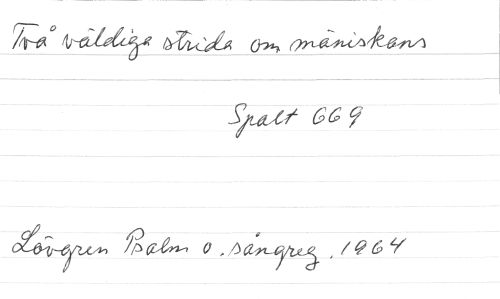 Två väldiga strida om mäniskans
Spalt 669
Lövgren Psalm o. sångreg. 1964